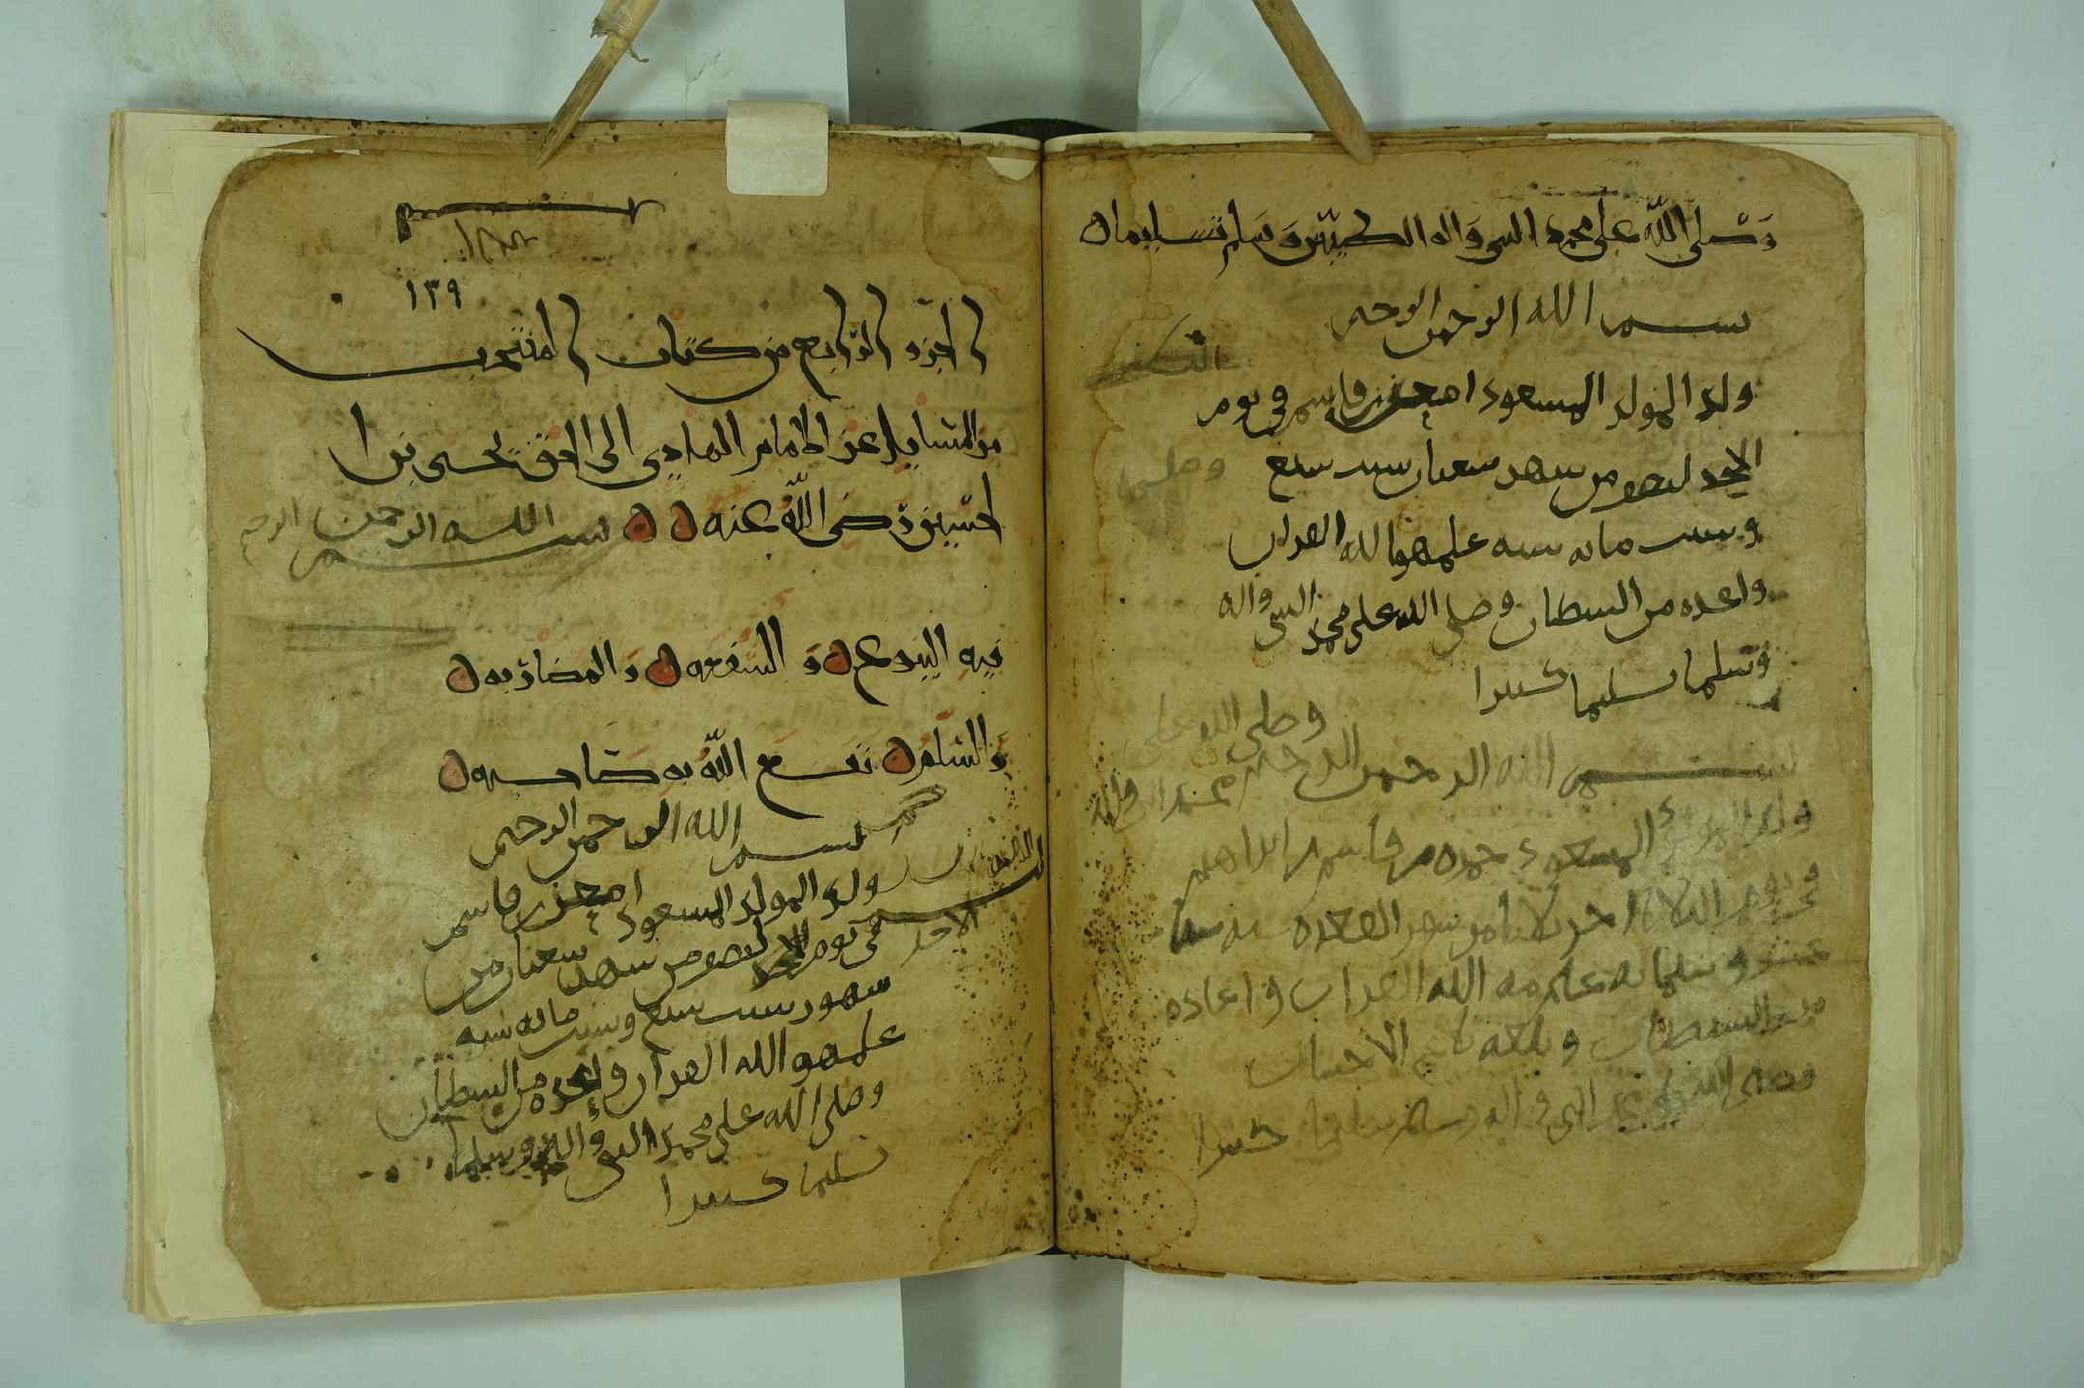 وصلى الله على محمد النبي واله الطيبين وسلم تسليما
بسم الله الرحمن الرحيم
ولد المولد المسعود احمد بن قاسم في يوم
الاحد لنصف من شهر شعبان سنه سبع
وست مايه سنه علمهو الله القران
واعده من الشيطان وصلى الله على محمد النبي واله
وسلما تسليما كثيرا
وصلى الله على
بسم الله الرحمن الرحيم
محمد النبي واله
ولد المولد المسعود حمزه بن قاسم بن ابراهيم
في يوم الثلاثا من شهر القعده سنه
علمه الله القران واعاده
من الشيطان وبلغه الاحسان
وصلى الله على محمد النبي واله وسلم تسليما كثيرا
١٣٩
الجزء الرابع من كتاب المنتخب
من المسايل عن الامام الهادي الى الحق يحيى بن ا
لحسين رضي الله عنه
بسم الله الرحمن الرحيم
فيه البيوع و الشفعه و المضاربه
والسلم نفع الله به صاحبه
بسم الله الرحمن الرحيم
ولد المولد المسعود احمد بن قاسم
في يوم الاحد لنصف من شهر شعبان من
الاحد
شهور سنه سبع وست مايه سنه
علمهو الله القران واعده من الشيطان
وصلى الله على محمد النبي واله وسلما
تسليما كثيرا